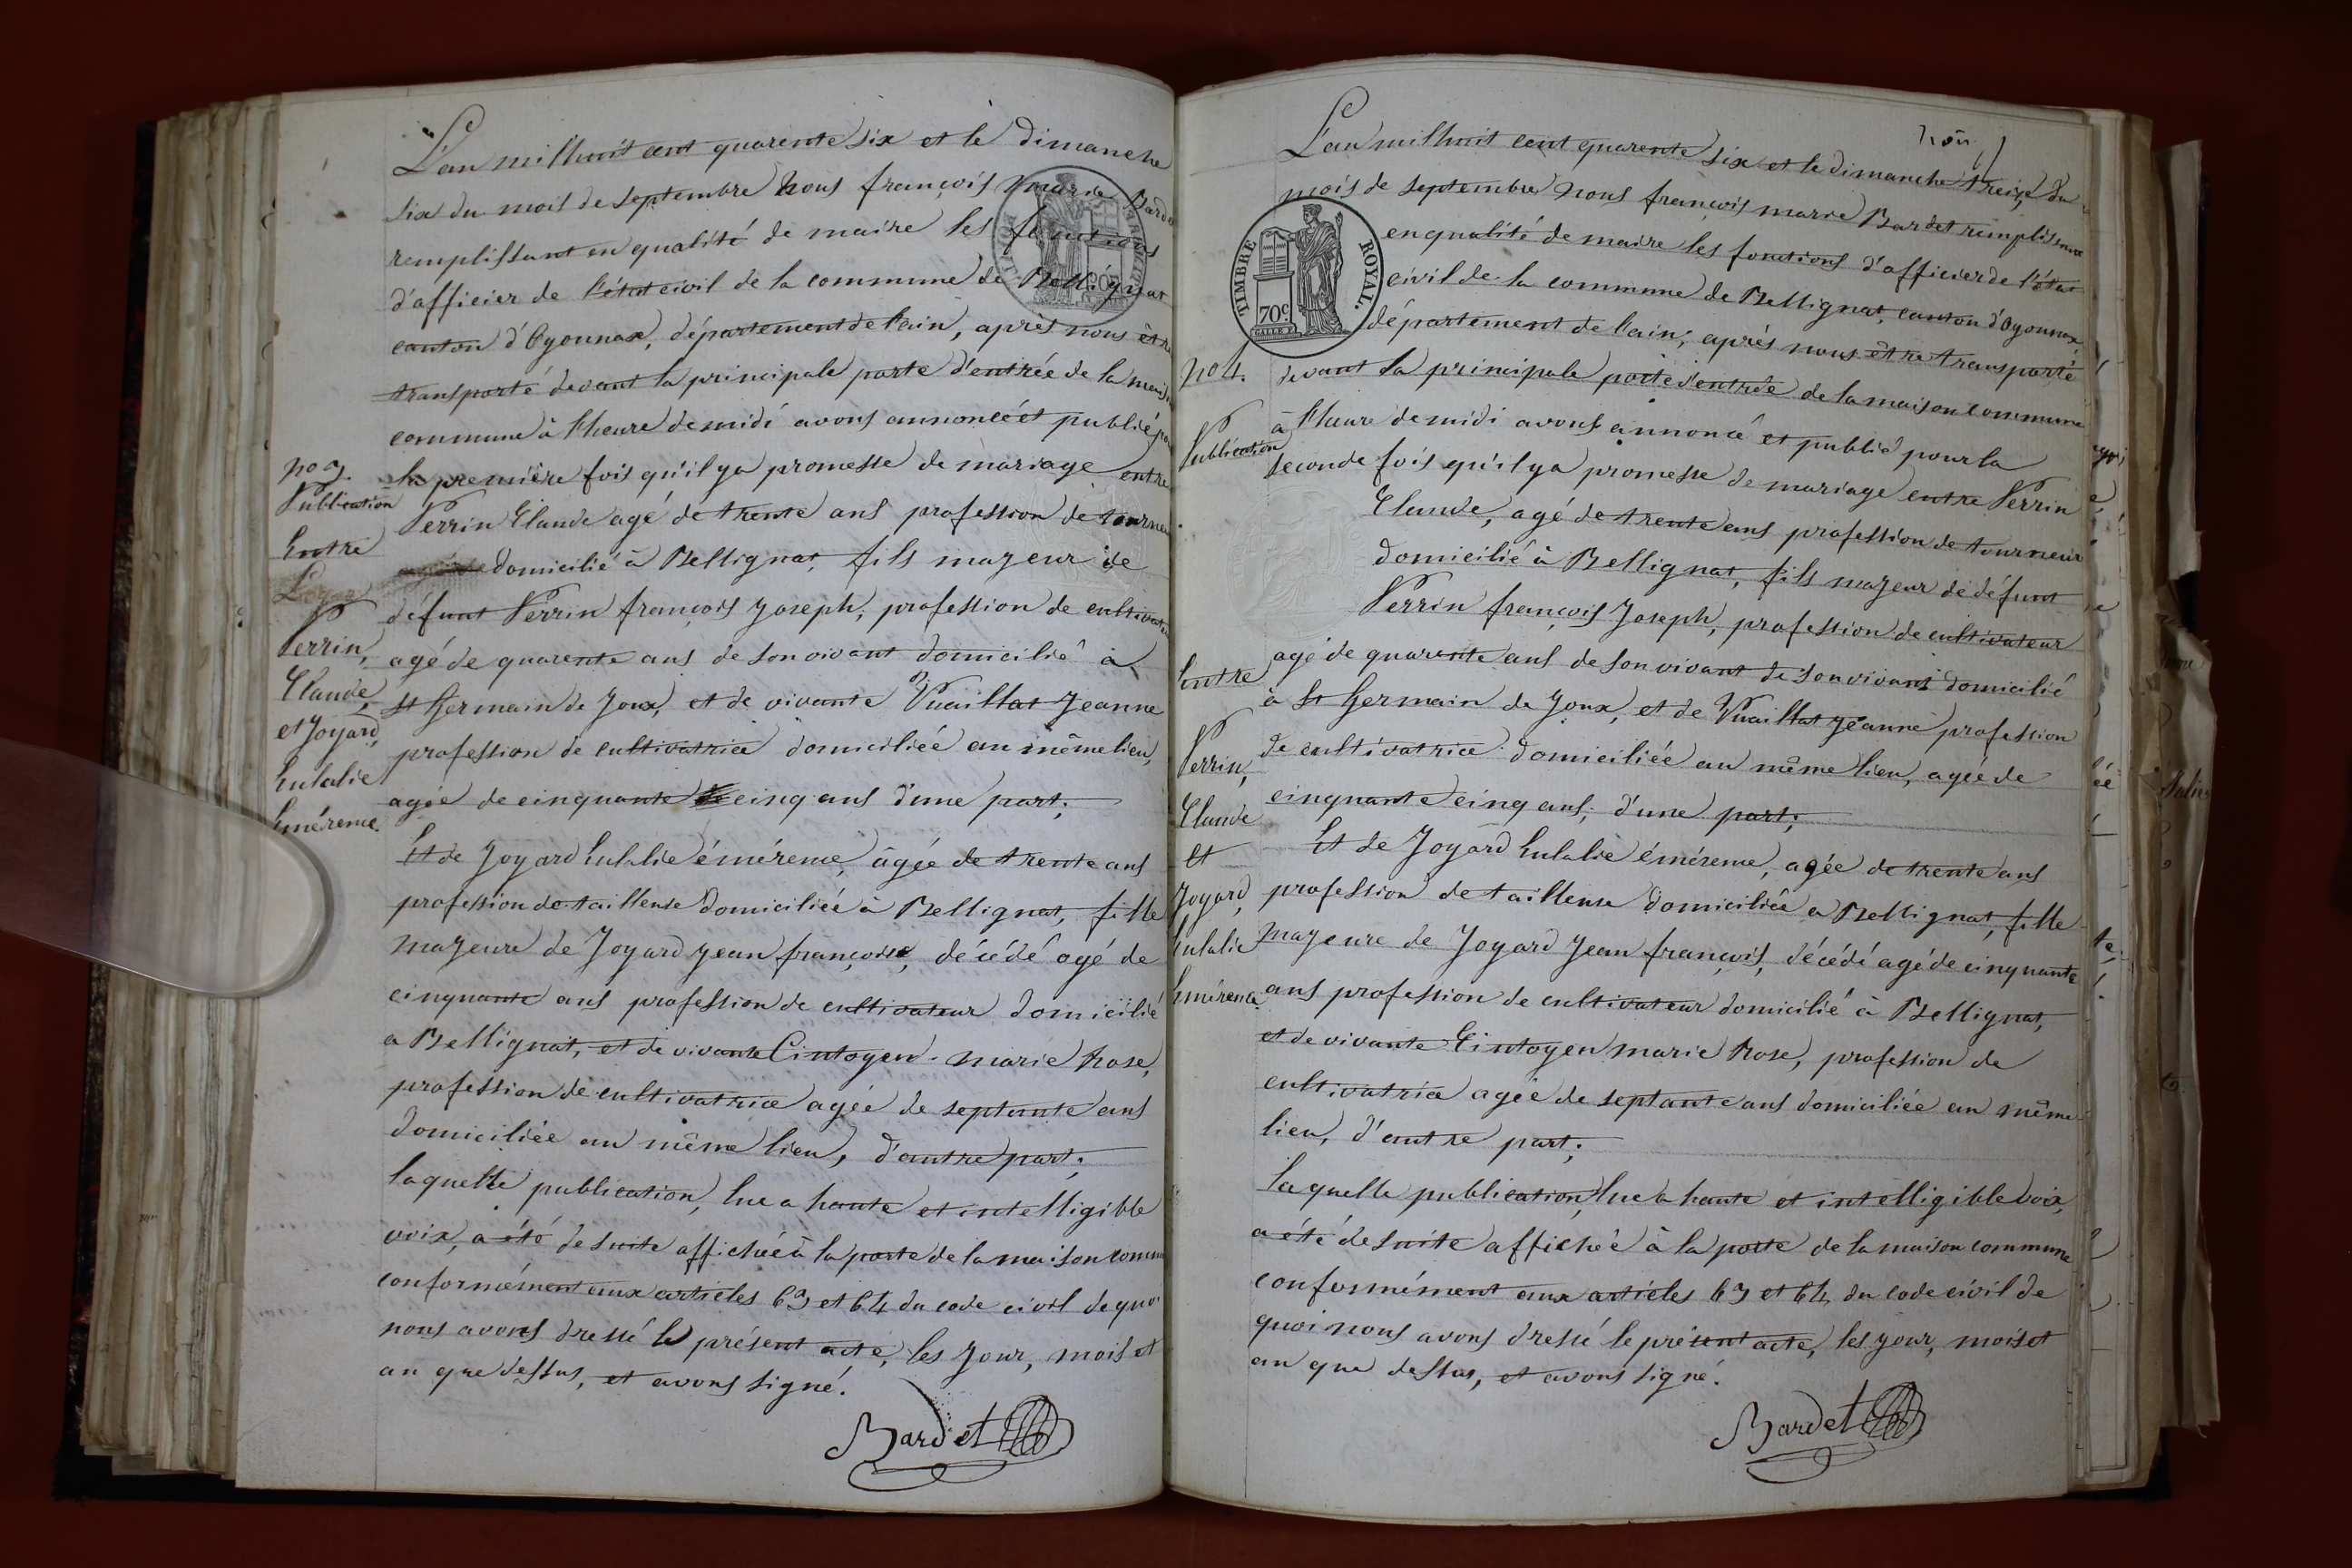 L'an mil huit cent quarente six et le Dimanche
six du mois de septembre Nous françois marie Bardet
remplissant en qualité de maire les fonctions
d'afficier de l'état civil de la commune de Bellignat
canton d'Oyonnax, département de l'ain, après nous être
transporté devant la principale porte d'entrée de la maison
commune à l'heure de midi avons annoncé et publié pour
la première fois qu'il y a promesse de mariage entre
Perrin Claude agé de trente ans profession de tourneur
domicilié à Bellignat, fils majeur de
défunt Perrin françois Joseph, profession de cultivateur
agé de quarente ans de son vivant domicilié à
st Germain de Joux, et de vivante Vuaillat Jeanne
profession de cultivatrice domiciliéé au même lieu,
agée de cinquante cinq ans d'une part;
Et de Joyard Eulalie émérence, âgée de trente ans
profession de tailleuse domiciliéé à Bellignat, fille
majeure de Joyard jean françois, décédé agé de
cinquante ans profession de cultivateur domicilié
a Bellignat, et de vivante Cintoyen marie Rose,
profession de cultivatrice agée de septante ans
domiciliée au même lieu, d'autre part;
laquelle publication, lue a haute et intelligible
voix, a été de suite affichéé à la porte de la maison commune
conformément aux articles 63 et 64 du code civil de quoi
nous avons dressé le présent acte, les jour, mois et
an que dessus, et avons signé.
Bardet
no 3.
Publication
Entre
Perrin,
Claude,
et Joyard,
Eulalie
Emérence.
L'an mil huit cent quarente six et le dimanche treize du
mois de septembre nous françois marie Bardet remplissant
en qualité de maire les fonctions d'afficier de l'état
civil de la commune de Bellignat, canton d'Oyonnax,
département de l'ain, après nous être transporté
devant la principale porte d'entrée de la maison commune
à l'heure de midi avons annoncé et publié pour la
seconde fois qu'il y a promesse de mariage entre Perrin
Claude, agé de trente ans profession de tourneur
domicilié à Bellignat, fils majeur de défunt
Perrin françois Joseph, profession de cultivateur
agé de quarente ans de son vivant de son vivant domicilié
à St Germain de Joux, et de Vuaillat Jeanne profession
de cultivatrice domiciliée au même lieu, agée de
cinquante cinq ans, d'une part;
Et de Joyard Eulalie émérence, agée de trente ans
profession de tailleuse domiciliée a Bellignat, fille
majeure de Joyard Jean françois, décédé agé de cinquante
ans profession de cultivateur domicilié à Bellignat,
et de vivante Cintoyen marie Rose, profession de
cultivatrice agée de septante ans domiciliée au même
lieu, d'autre part;
laquelle publication, lue a haute et intelligible voix,
a été de suite affichée à la porte de la maison commune
conformément aux articles 63 et 64 du code civil de
quoi nous avons dressé le présent acte, les jour, mois et
an que dessus, et avons signé.
Bardet
TIMBRE ROYAL.
70c.
no 4.
Publication
Entre
Perrin,
Claude
et
Joyard,
Eulalie
Emérence.